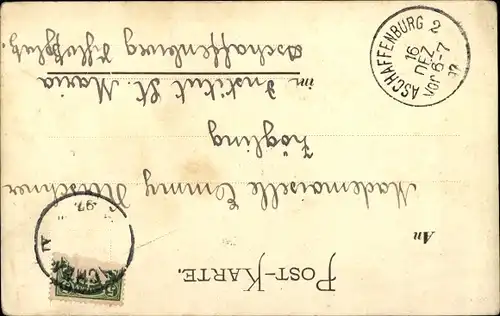 POST-KARTE.
An
Mademoiselle Emmy
Zögling
im Institut St. Maria
Aschaffenburg
ASCHAFFENBURG 2
16
DEZ
VOR 6-7
97
97.